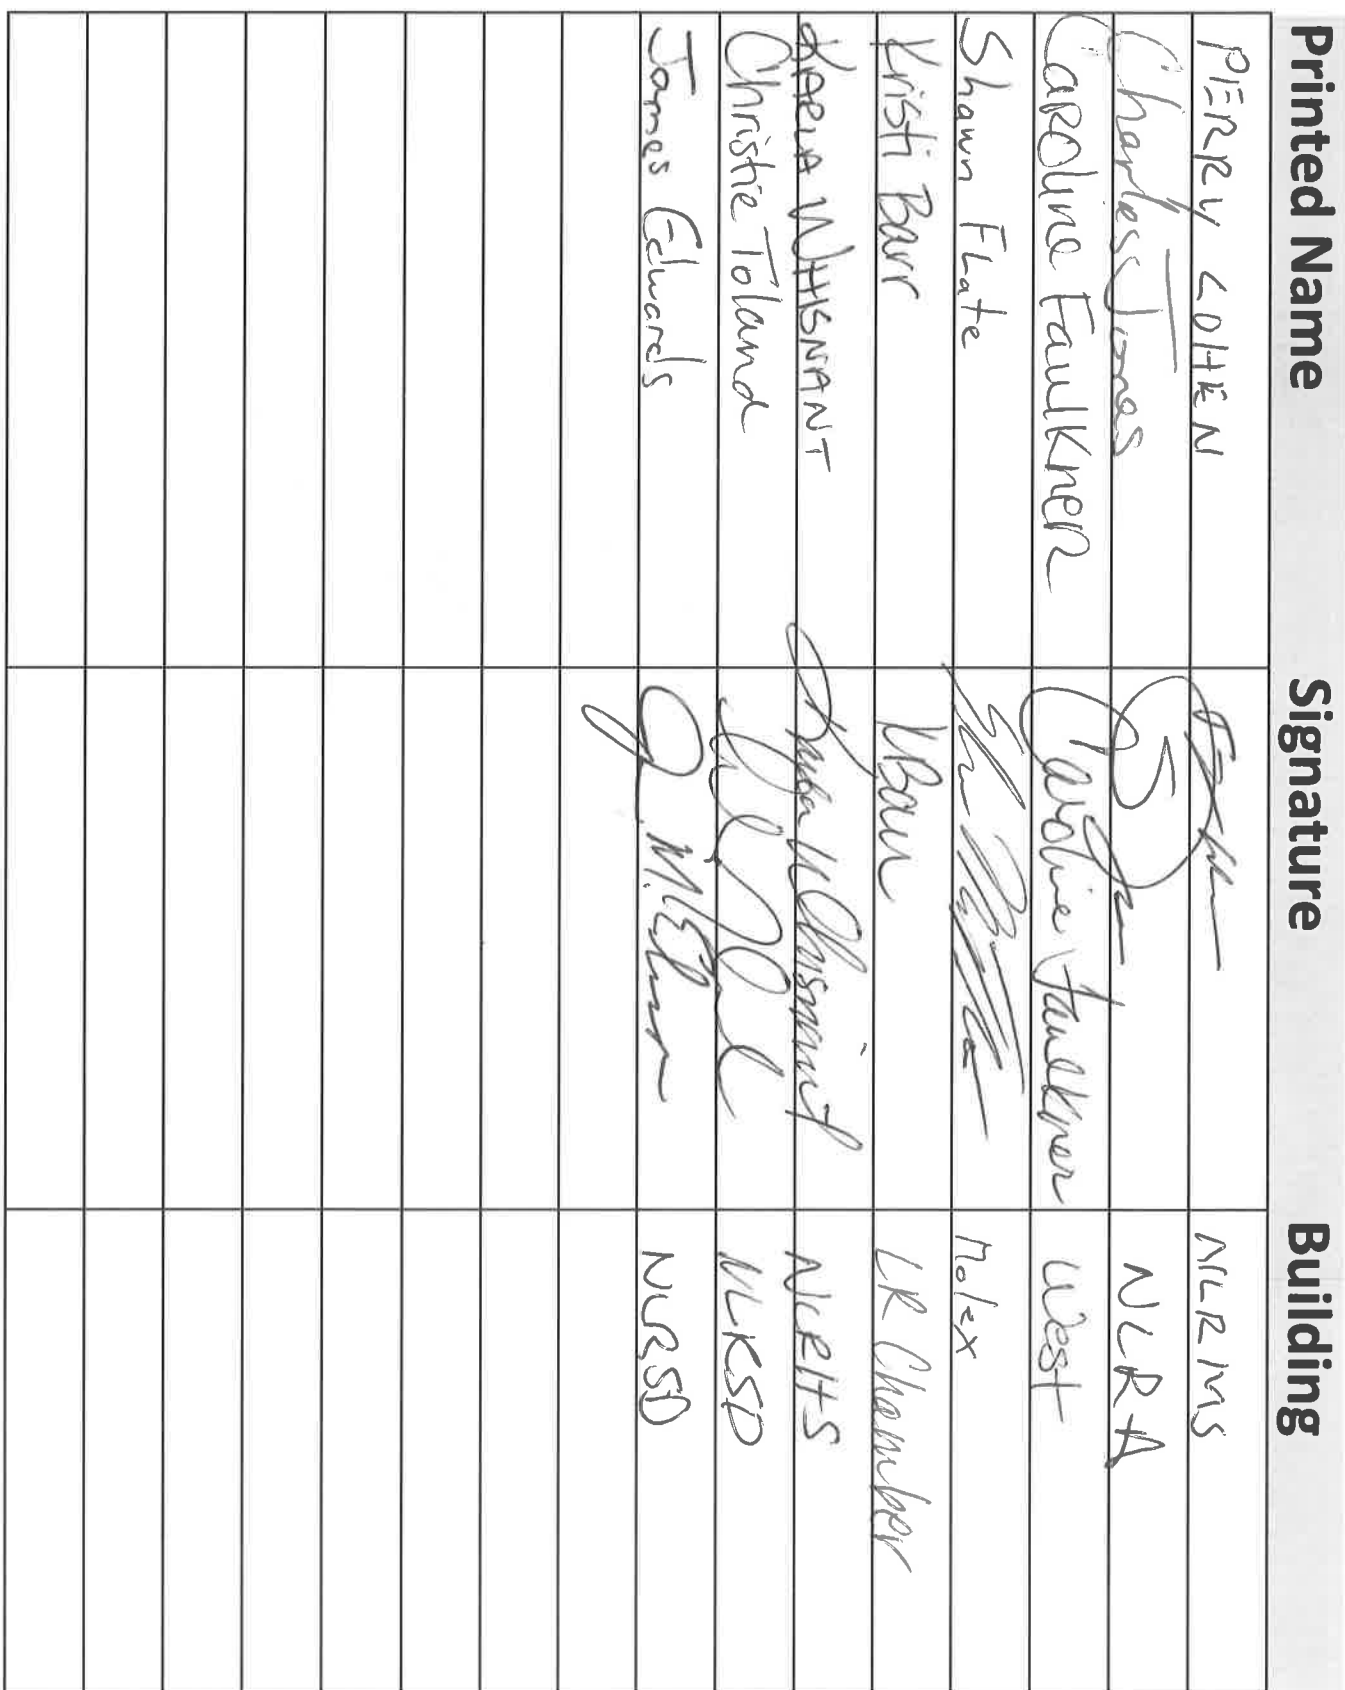 Printed Name Signature Building
PERRY COHEN NLRMS
Charles Jones NLRA
Caroline Faulkner Caroline Faulkner West
Shawn Flate Molex
Kristi Barr KBarr LR Chamber
KARLA WHISNANT Karla Whisnant NLRHS
Christie Toland NLRSD
James Edwards NLRSD